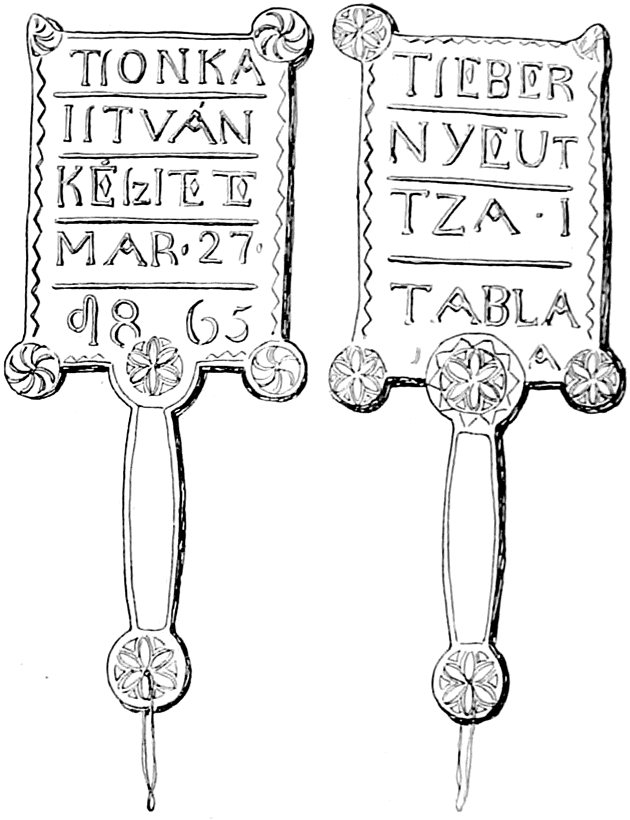 TIONKA
IITVÁN
KÉIzITETE
MAR·27·
1865
TIEBER
NYEUT
TZA·I
TABLA
A